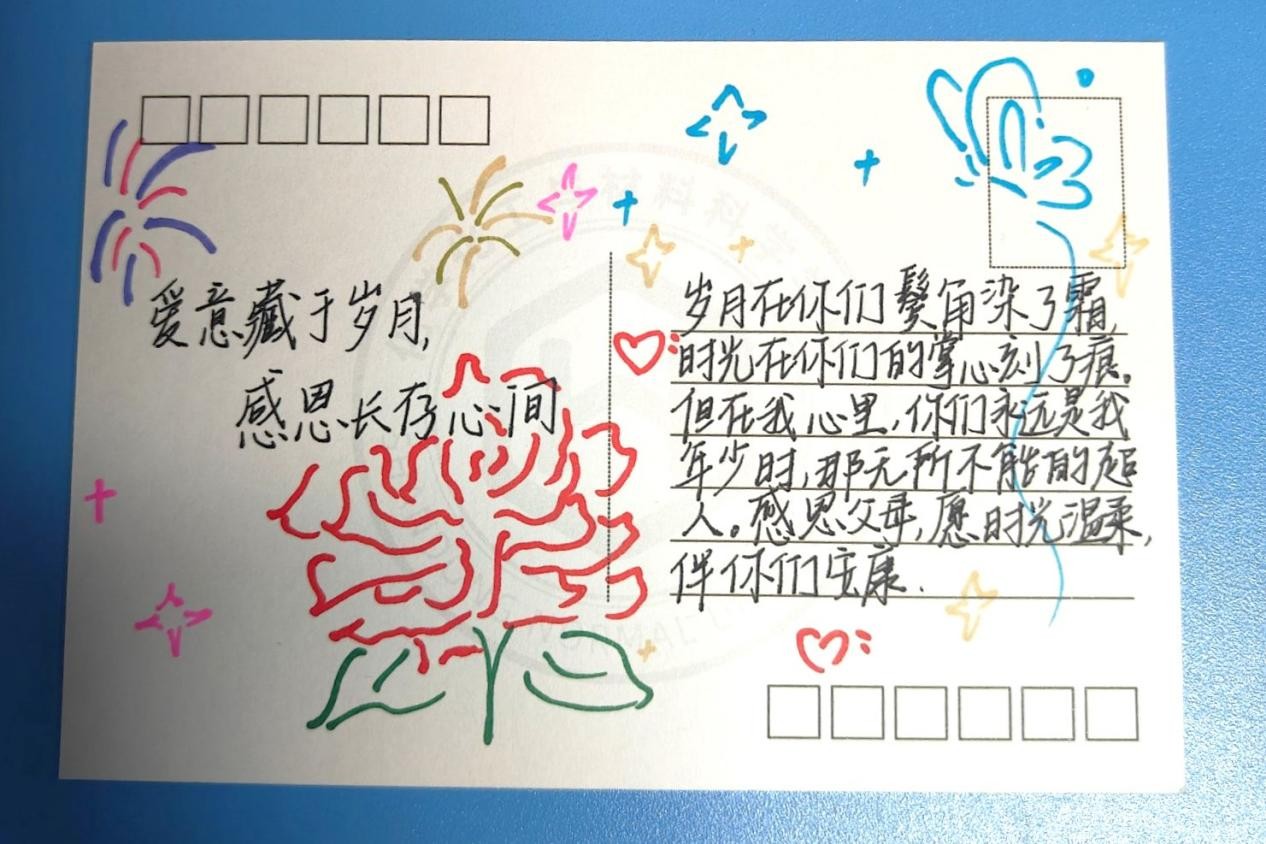 爱意藏于岁月,
感恩长存心间
岁月在你们鬓角染了霜,
时光在你们的掌心刻了痕。
但在我心里,你们永远是我
年少时,那无所不能的超
人。感恩父母,愿时光温柔,
伴你们安康.
材料科学
NORMAL